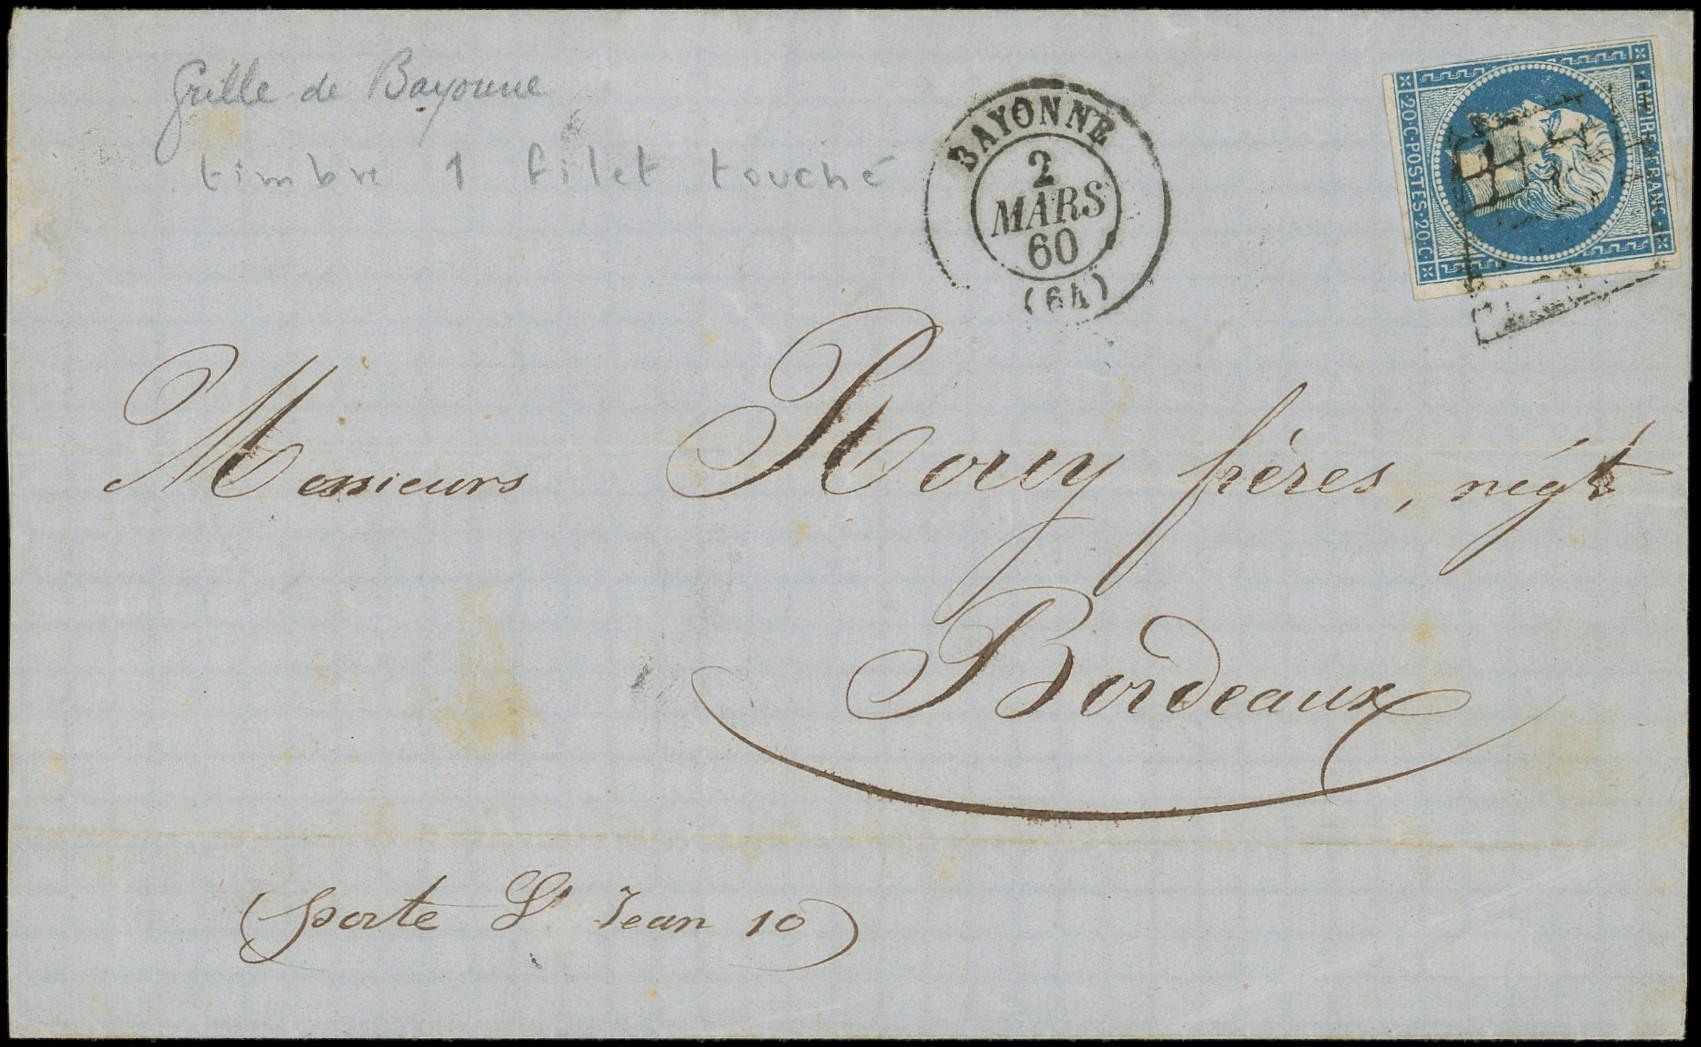 Grille de Bayonne
timbre 1 filet touché
BAYONNE
2
MARS
60
(64)
EMPIRE FRANC
20·C·POSTES·20·C
Messieurs Rouy frères, négt
Bordeaux
(porte St Jean 10)